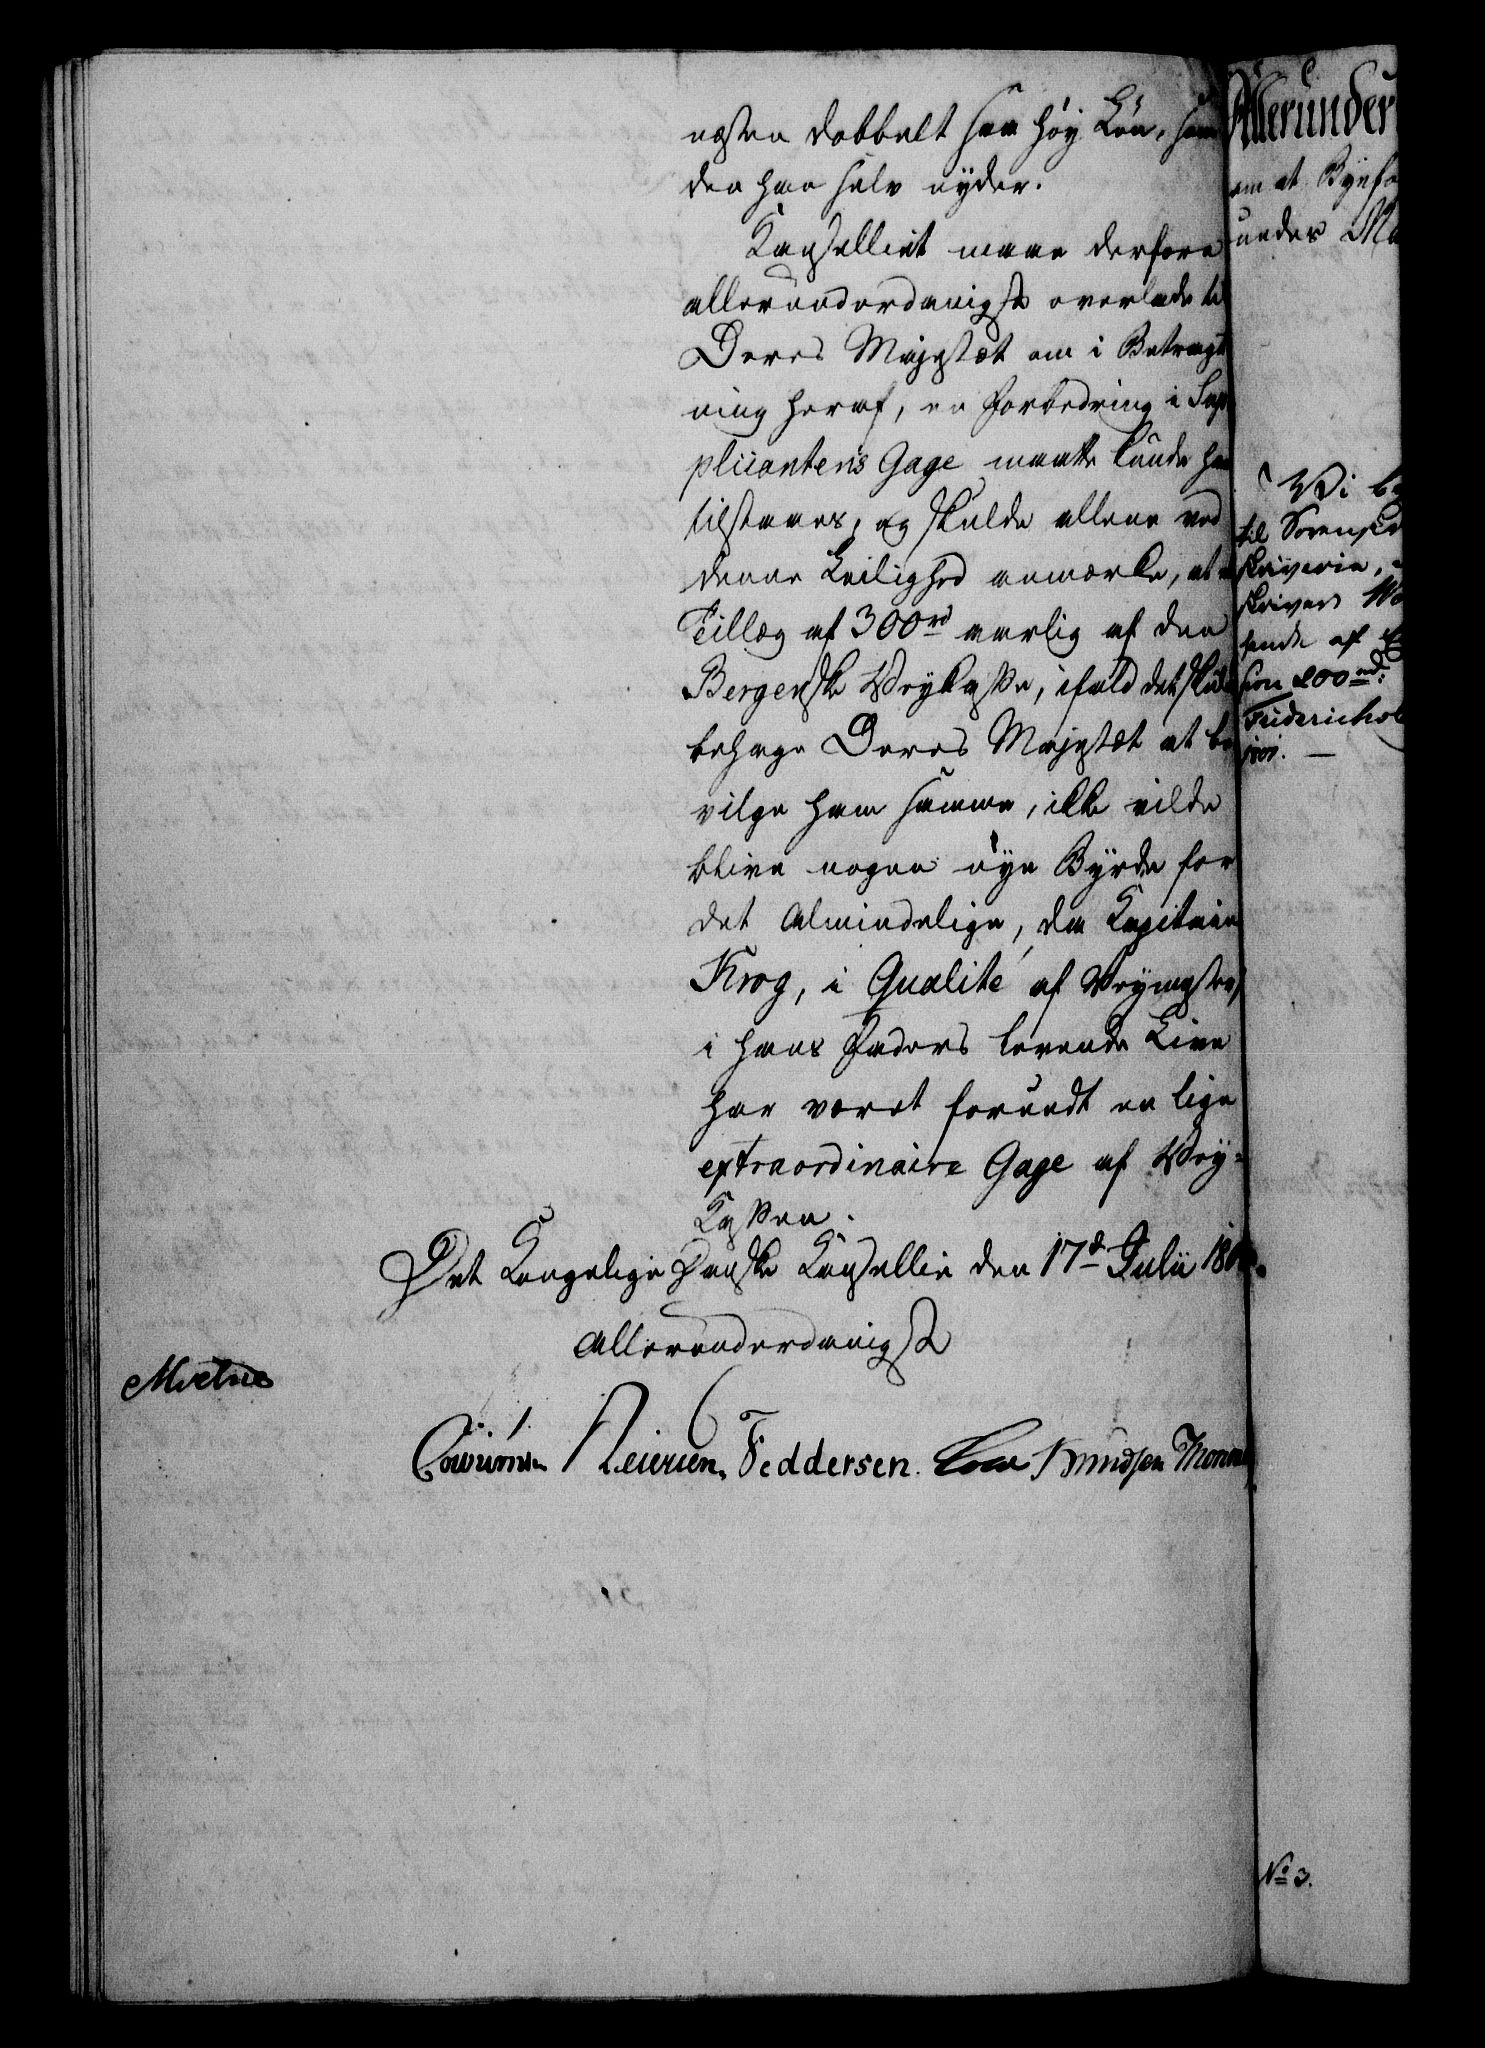 næsten dobbelt saa høy Løn, som
den han selv nyder.
Kancelliet maae derfore
allerunderdanigst overlade til
Deres Majestæt om i Betragt
ning heraf, en Forbedring i Sup
plicantens Gage maatte kunde ham
tilstaaes, og skulde allene ved
denne Leilighed anmærke, at et
Tillæg af 300rd aarlig af den
Bergenske Veykasse, ifald det skulde
behage Deres Majestæt at be
vilge ham samme, ikke vilde
blive nogen nye Byrde for
det Almindelige, da Capitain
Krog, i Qualité af Veymester,
i hans Faders levende Live
har været forundt en lige
extraordinaire Gage af Vey-
Kassen.
Det Kongelige Danske Kancellie den 17de Julii 180
Allerunderdanigst
Feddersen. Knudsen
Allerunder
om at Byefo
under Ma
Vi b
til Sorenskr
skriverie,
skriver
sion 200rd:
Friderichsb
1801.
No 3.